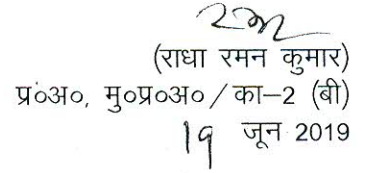 (राधा रमन कुमार)
प्रं०अ०, मु०प्र०अ०/का–2 (बी)
19 जून 2019